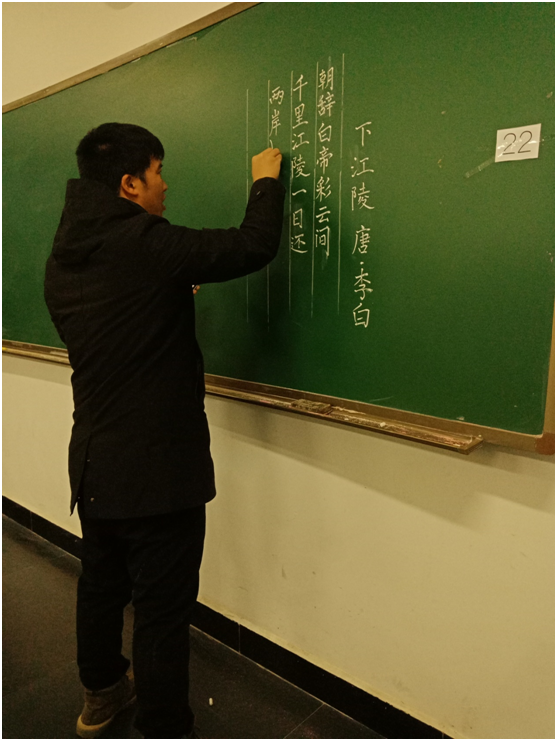 下江陵 唐·李白
朝辞白帝彩云间
千里江陵一日还
两岸
22